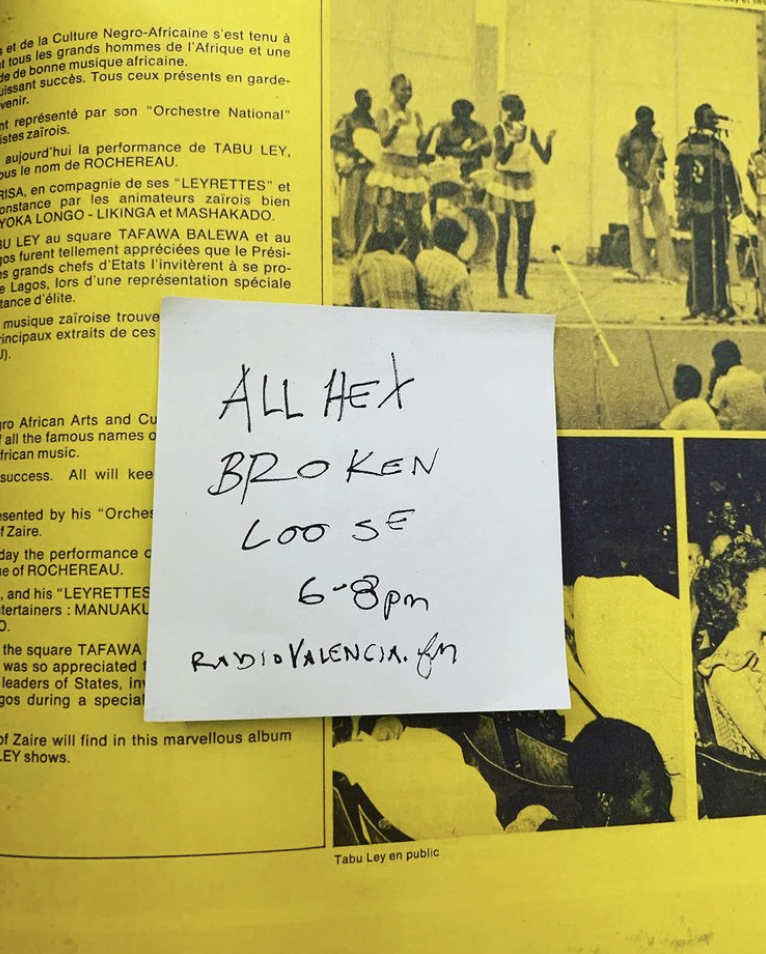 s et de la Culture Negro-Africaine s'est tenu à
t tous les grands hommes de l'Afrique et une
de de bonne musique africaine.
uissant succès. Tous ceux présents en garde-
venir.
nt représenté par son "Orchestre National"
istes zaïrois.
aujourd'hui la performance de TABU LEY,
ous le nom de ROCHEREAU.
RISA, en compagnie de ses "LEYRETTES" et
onstance par les animateurs zaïrois bien
YOKA LONGO - LIKINGA et MASHAKADO.
BU LEY au square TAFAWA BALEWA et au
gos furent tellement appréciées que le Prési-
es grands chefs d'Etats l'invitèrent à se pro-
e Lagos, lors d'une représentation spéciale
tance d'élite.
musique zaïroise trouve
rincipaux extraits de ces
J).
gro African Arts and Cu
f all the famous names o
frican music.
success. All will kee
esented by his "Orches
f Zaire.
day the performance o
e of ROCHEREAU.
, and his "LEYRETTES
tertainers : MANUAKU
O.
the square TAFAWA
was so appreciated t
leaders of States, inv
gos during a special
of Zaire will find in this marvellous album
LEY shows.
ALL HEX
BROKEN
LOOSE
6-8pm
RADIOVALENCIA.fm
Tabu Ley en public